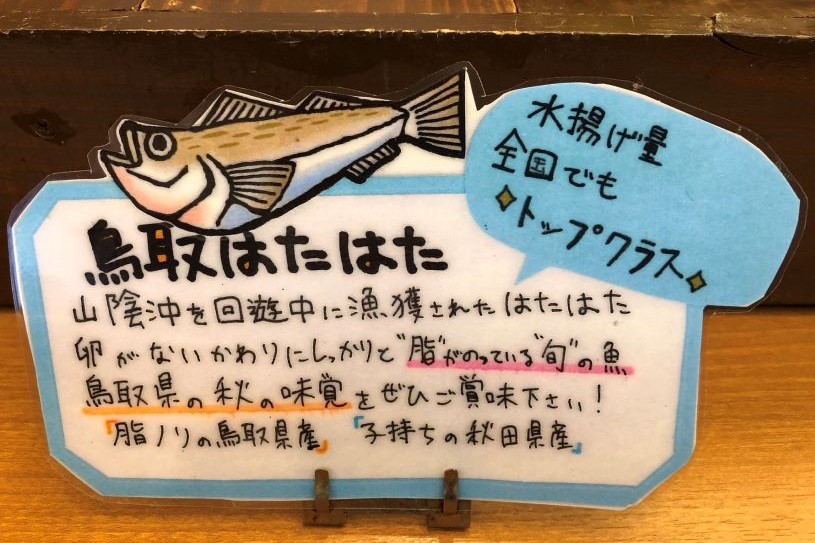 水揚げ量
全国でも
トップクラス
鳥取はたはた
山陰沖を回遊中に漁獲されたはたはた
卵がないかわりにしっかりと"脂"がのっている"旬"の魚
鳥取県の秋の味覚をぜひご賞味下さい！
「脂ノリの鳥取県産」「子持ちの秋田県産」